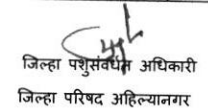 जिल्हा पशुसंवर्धन अधिकारी
जिल्हा परिषद अहिल्यानगर